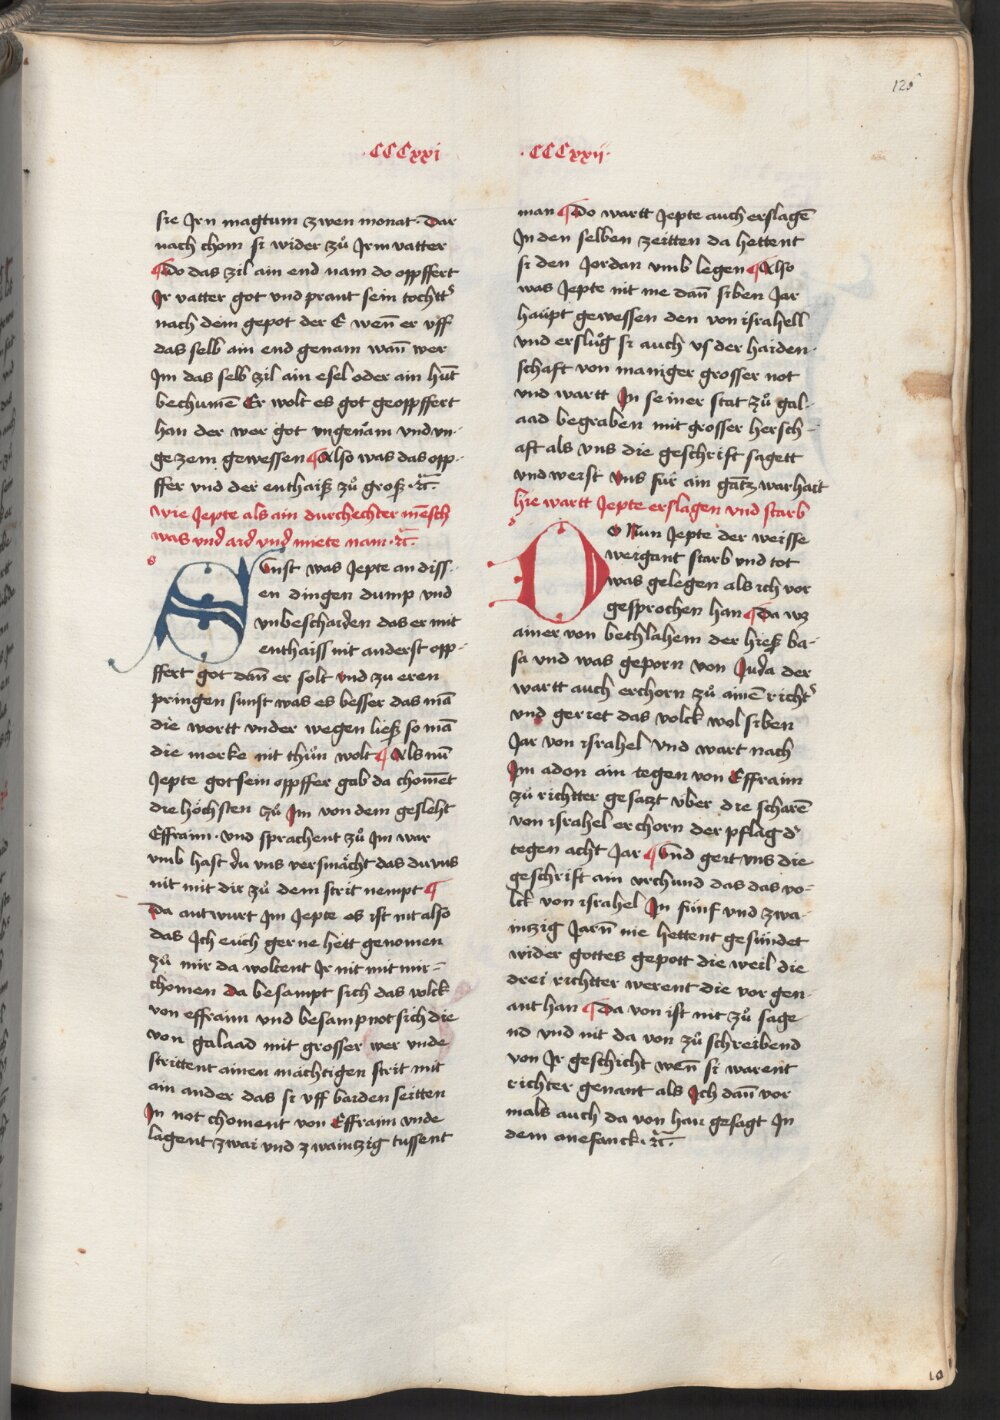 125
·CCCxxi
sie Jrn magtum zwen monat· Dar
nach chom si wider zů Jrm vatter
¶Do das zil ain end nam do oppffert
Jr vatter got vnd prant sein tochtt̓
nach dem gepot der E wen̄ er vff
das selb ain end genam wan̄ wer
Jm das selb zil ain esel oder ain hūt
bechumē Er wolt es got geoppffert
han der wer got vngenäm vnd vn-
gezem gewessen ¶Also was das opp-
ffer vnd der enthaiß zů groß· ⁊c̄·
wie Jepte als ain durchechter mēsch
was vnd ard vnd miete nam· ⁊c̄·
Sunst was Jepte an diss-
en dingen dump vnd
vnbeschaiden das er mit
enthaiss nit anderst opp-
ffert got dan̄ er solt vnd zu eren
pringen sunst was es besser das mā
die wortt vnder wegen ließ so mā
die mercke nit thůn wolt ¶Als nū
Jepte got sein oppffer gab da chomēt
die höchsten zů Jm von dem geslecht
Effraim· vnd sprachent zů Jm war
vmb hast du vns versmächt das du vns
nit mit dir zů dem strit nempt ¶
Da antwurt Jm Jepte es ist nit also
das Jch euch gerne hett genomen
zů mir da woltent Jr nit mit mir-
chomen Da besampt sich das volck
von effraim vnd besampnot sich die
von galaad mit grosser wer vnde
strittent ainen mächtigen strit mit
ain ander das si vff baiden seitten
Jn not choment von Effraim vnde
lagent zwai vnd zwainczig tussent
·CCCxxii·
man ¶Do wartt Jepte auch erslagē
Jn den selben zeitten da hettent
si den Jordan vmb legen ¶Also
was Jepte nit me dan̄ siben Jar
haupt gewessen den von israhell
vnd erslůg si auch vs der haiden-
schaft von maniger grosser not
vnd wartt Jn seiner stat zů gal-
aad begraben mit grosser hersch-
aft als vns die geschrift sagett
vnd weist vns für ain gātz warhait
hie wartt Jepte erslagen vnd starb
DO Nun Jepte der weisse
weigant starb vnd tot
was gelegen als ich vor
gesprochen han ¶Da wz
ainer von bethlahem der hieß ba-
sa vnd was geporn von Juda der
wartt auch erchorn zů ainē richt̓
vnd geriet das volck wol siben
Jar von israhel vnd wart nach
Jm adon ain tegen von Effraim
zů richtter gesatzt über die scharē
von israhel erchorn der pflag d̓
tegen acht Jar ¶Vnd geit vns die
geschrift ain vrchund das das vo-
lck von israhel Jn fünf vnd zwa-
inczig Jarn̄ nie hettent gesündet
wider gottes gepott die weil die
drei richtter werent die vor gen-
ant han ¶Da von ist nit zů sage
nd vnd nit da von zů schreibend
von Jr geschicht wen̄ si warent
richter genant als Jch dan̄ vor
mals auch da von han gesagt Jn
dem anefanck· ⁊c̄·